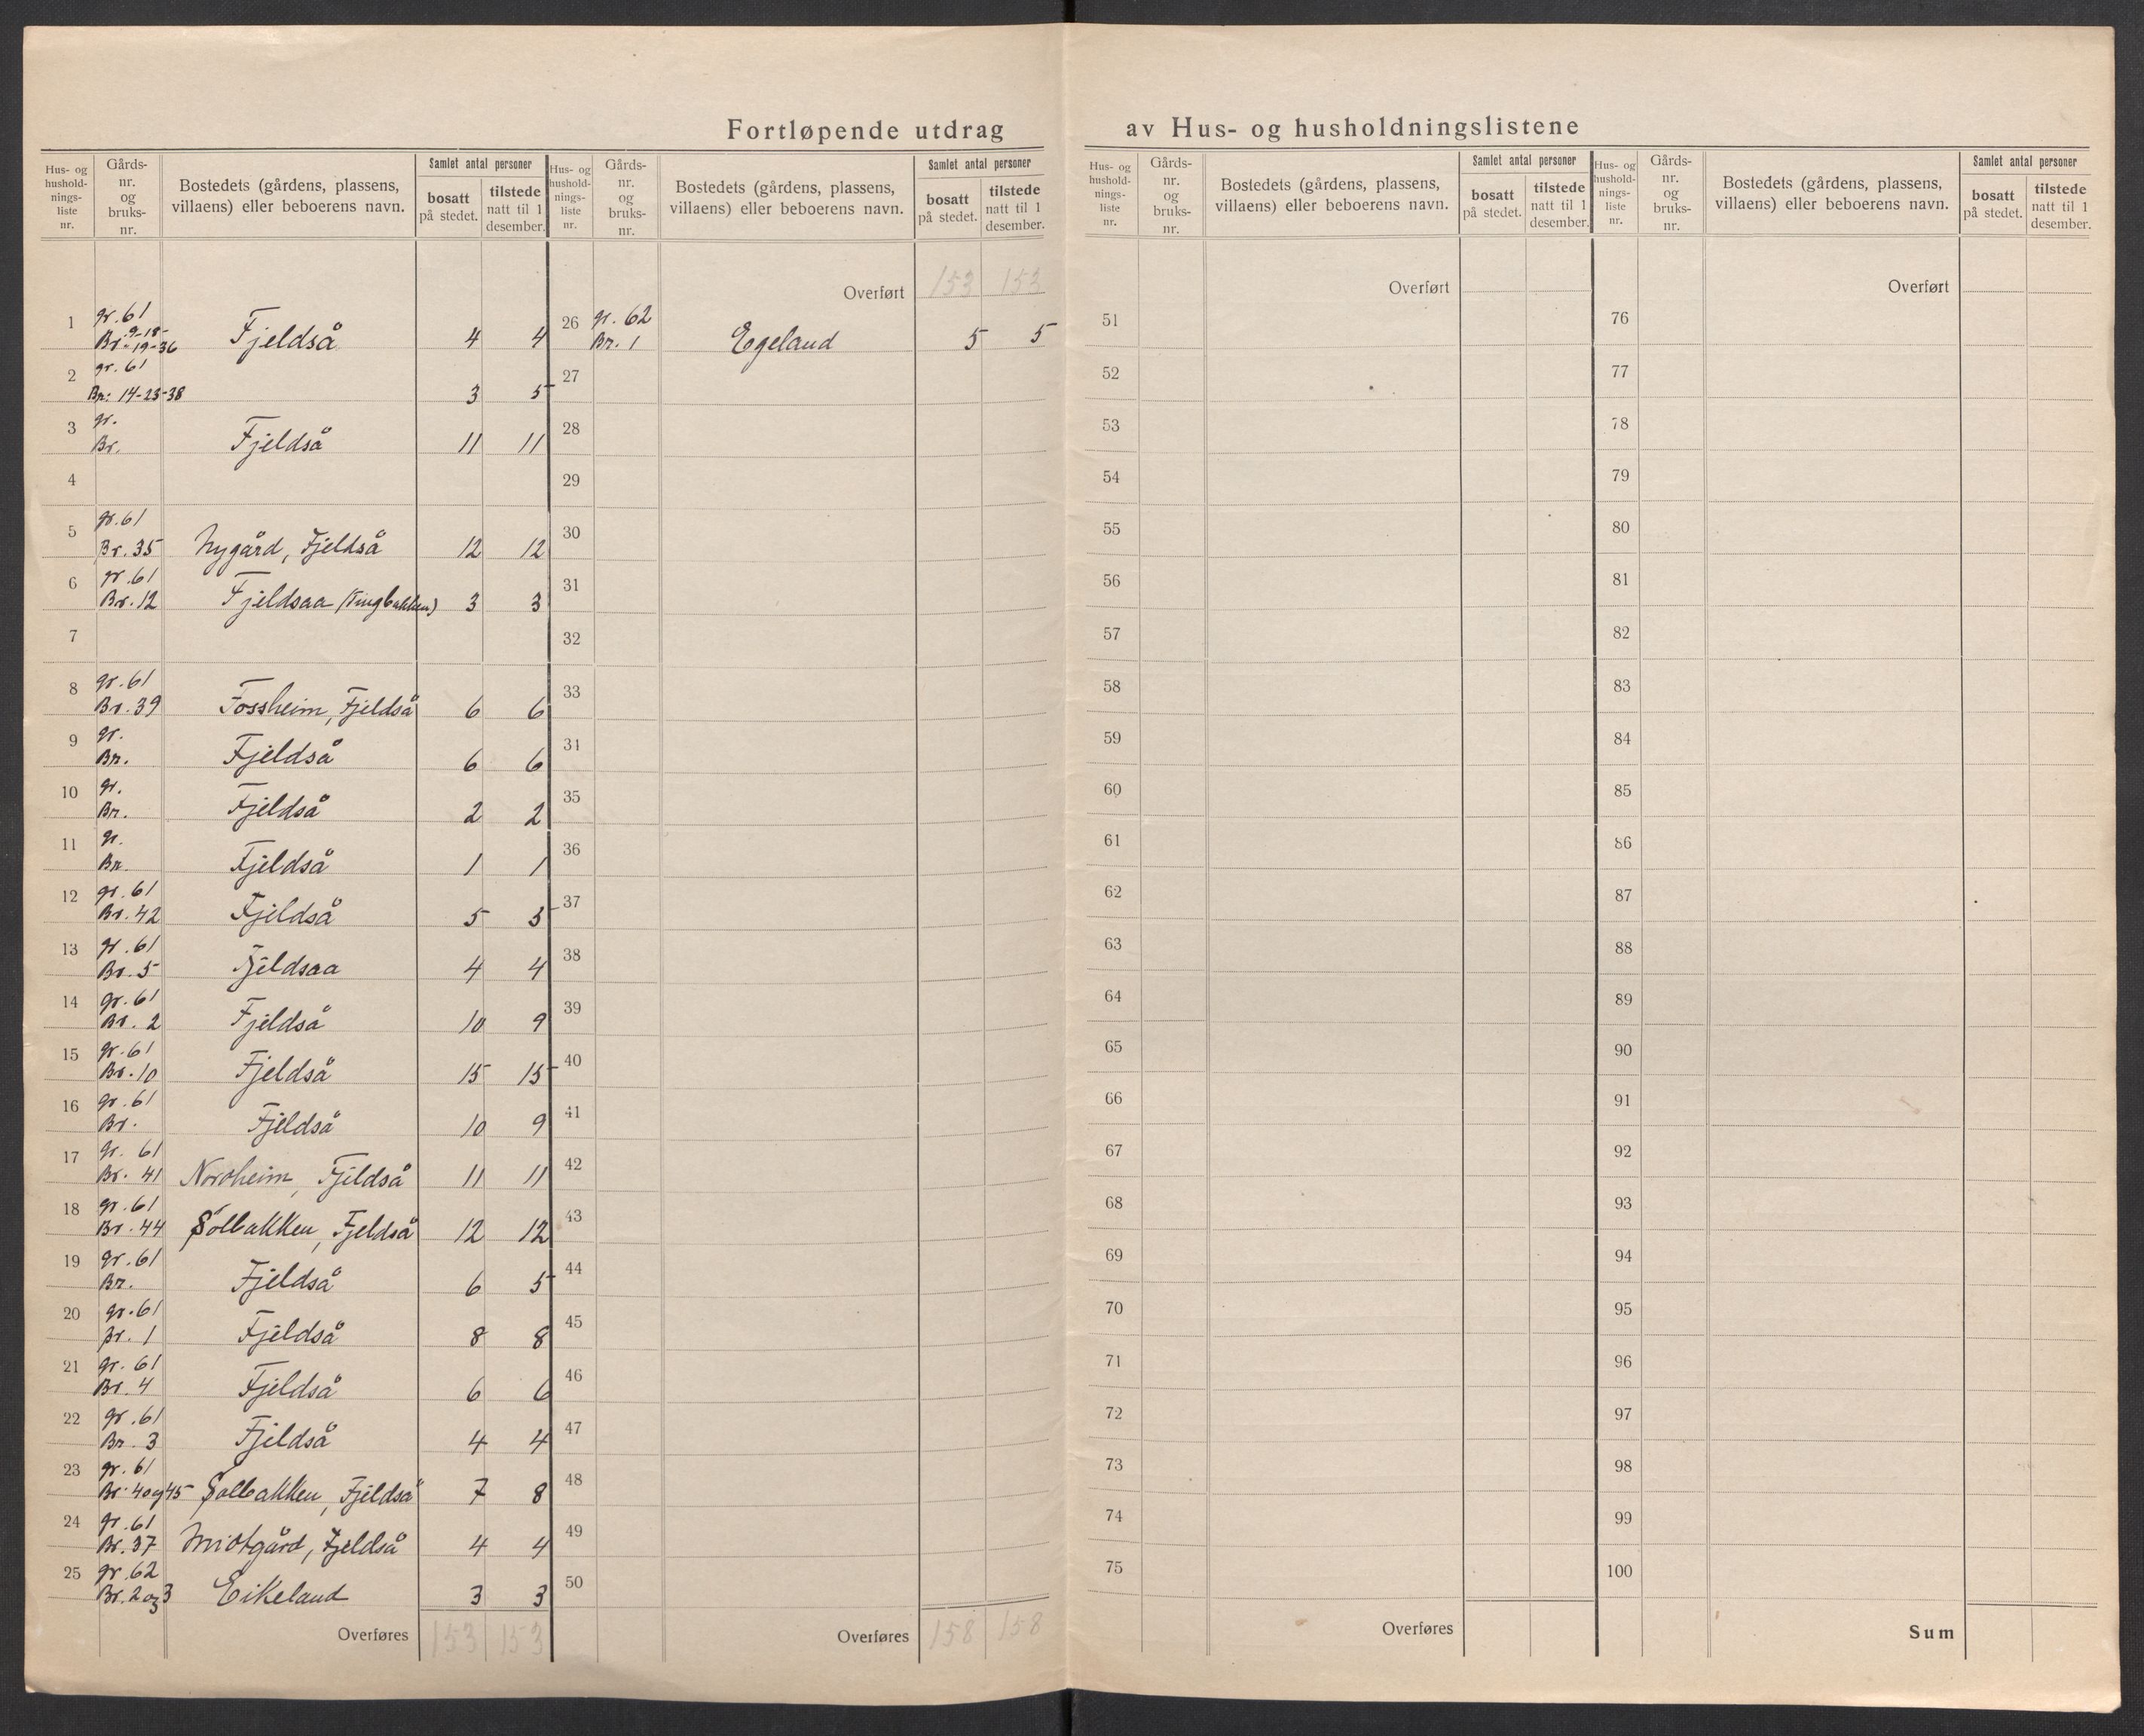 Fortløpende utdrag av Hus- og husholdningslistene
Hus- og hushold-nings-liste nr. | Gårds-nr. og bruks-nr. | Bostedets (gårdens, plassens, villaens) eller beboerens navn. | Samlet antal personer | bosatt på stedet. | tilstede natt til 1 desember.
1 gr. 61 Br. 9-18-19-36 Fjeldså 4 4
2 gr. 61 Br: 14-23-38 3 5
3 gr. Br. Fjeldså 11 11
4
5 gr. 61 Br. 35 Nygård, Fjeldså 12 12
6 gr. 61 Br. 12 Fjeldsaa (Tingbakken) 3 3
7
8 gr. 61 Br. 39 Fossheim, Fjeldså 6 6
9 gr. Br. Fjeldså 6 6
10 gr. Br. Fjeldså 2 2
11 gr. Br. Fjeldså 1 1
12 gr. 61 Br. 42 Fjeldså 5 5
13 gr. 61 Br. 5 Fjeldsaa 4 4
14 gr. 61 Br. 2 Fjeldså 10 9
15 gr. 61 Br. 10 Fjeldså 15 15
16 gr. 61 Br. Fjeldså 10 9
17 gr. 61 Br. 41 Nordheim, Fjeldså 11 11
18 gr. 61 Br. 44 Solbakken, Fjeldså 12 12
19 gr. 61 Br. Fjeldså 6 5
20 gr. 61 Br. 1 Fjeldså 8 8
21 gr. 61 Br. 4 Fjeldså 6 6
22 gr. 61 Br. 3 Fjeldså 4 4
23 gr. 61 Br. 4 og 45 Solbakken, Fjeldså 7 8
24 gr. 61 Br. 37 Midtgård, Fjeldså 4 4
25 gr. 62 Br. 2 og 3 Eikeland 3 3
Overføres 153 153
Hus- og hushold-nings-liste nr. | Gårds-nr. og bruks-nr. | Bostedets (gårdens, plassens, villaens) eller beboerens navn. | Samlet antal personer | bosatt på stedet. | tilstede natt til 1 desember.
Overført 153 153
26 gr. 62 Br. 1 Egeland 5 5
27
28
29
30
31
32
33
34
35
36
37
38
39
40
41
42
43
44
45
46
47
48
49
50
Overføres 158 158
Hus- og hushold-nings-liste nr. | Gårds-nr. og bruks-nr. | Bostedets (gårdens, plassens, villaens) eller beboerens navn. | Samlet antal personer | bosatt på stedet. | tilstede natt til 1 desember.
Overført
51
52
53
54
55
56
57
58
59
60
61
62
63
64
65
66
67
68
69
70
71
72
73
74
75
Overføres
Hus- og hushold-nings-liste nr. | Gårds-nr. og bruks-nr. | Bostedets (gårdens, plassens, villaens) eller beboerens navn. | Samlet antal personer | bosatt på stedet. | tilstede natt til 1 desember.
Overført
76
77
78
79
80
81
82
83
84
85
86
87
88
89
90
91
92
93
94
95
96
97
98
99
100
Sum